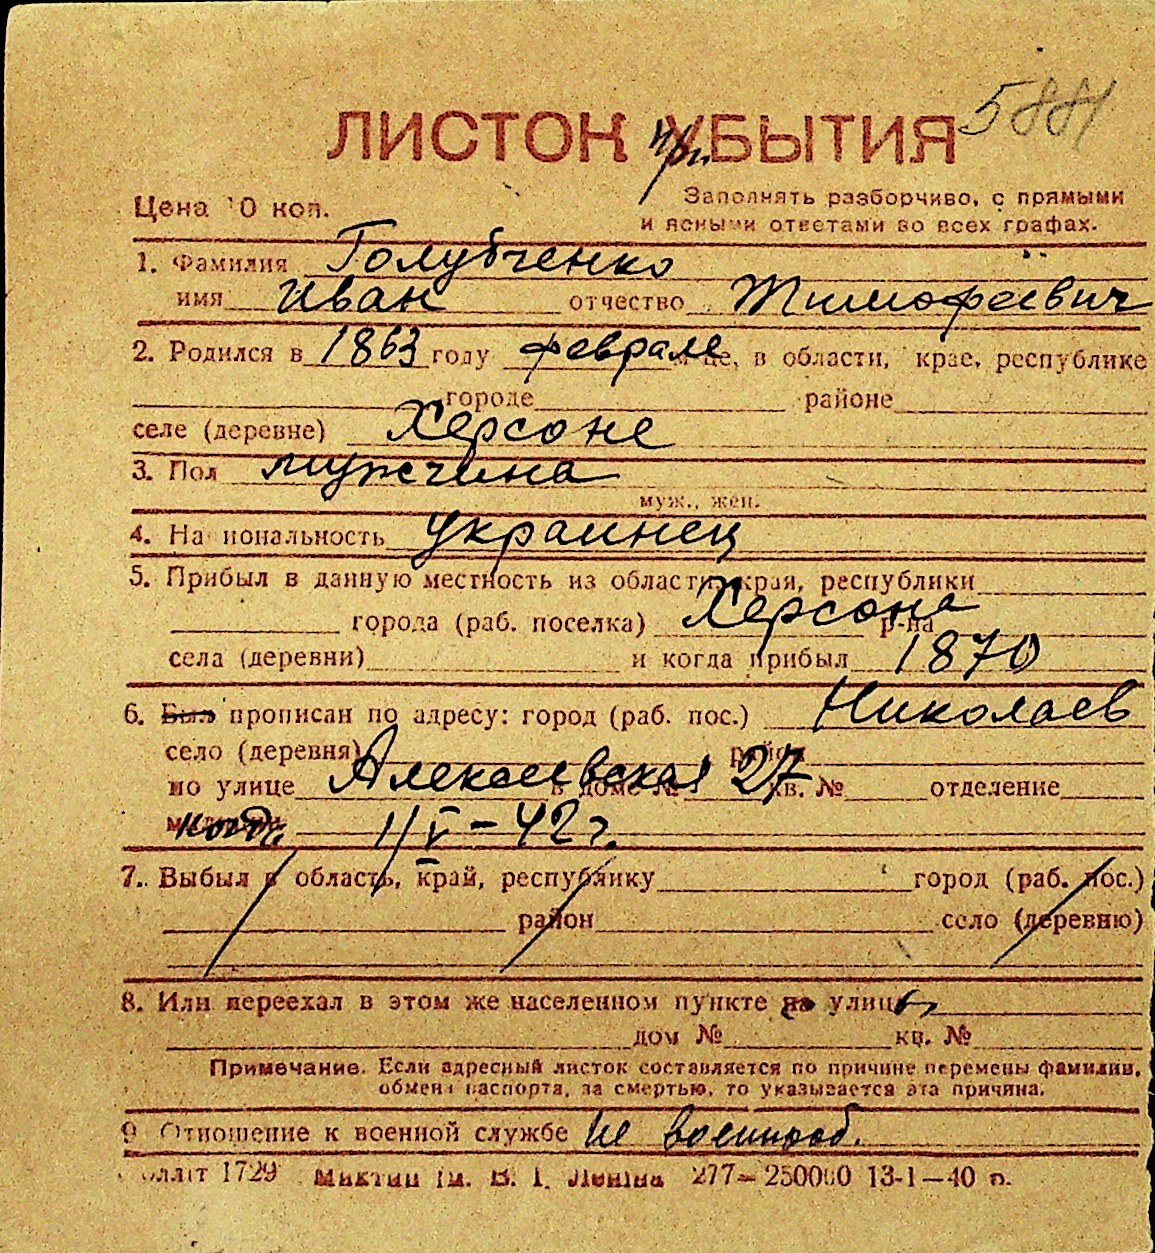 5884
ЛИСТОК УБЫТИЯ
при
Цена 10 коп.
Заполнять разборчиво, с прямыми
и ясными ответами во всех графах.
1. Фамилия Голубченко
имя Иван отчество Тимофеевич
2. Родился в 1863 году феврале м-це, в области, крае, республике
городе районе
селе (деревне) Херсоне
3. Пол мужчина
муж., жен.
4. Национальность украинец
5. Прибыл в данную местность из области, края, республики
города (раб. поселка) Херсона р-на
села (деревни) и когда прибыл 1870
6. Был прописан по адресу: город (раб. пос.) Николаев
село (деревня) район
по улице Алексеевская 27 в доме № кв. № отделение
когда 1/V-42 г.
7. Выбыл в область, край, республику город (раб. пос.)
район село (деревню)
8. Или переехал в этом же населенном пункте на улицу
дом № кв. №
Примечание. Если адресный листок составляется по причине перемены фамилии,
обмена паспорта, за смертью, то указывается эта причина.
9. Отношение к военной службе Не военнооб.
1729 277—250000 13-1—40 р.